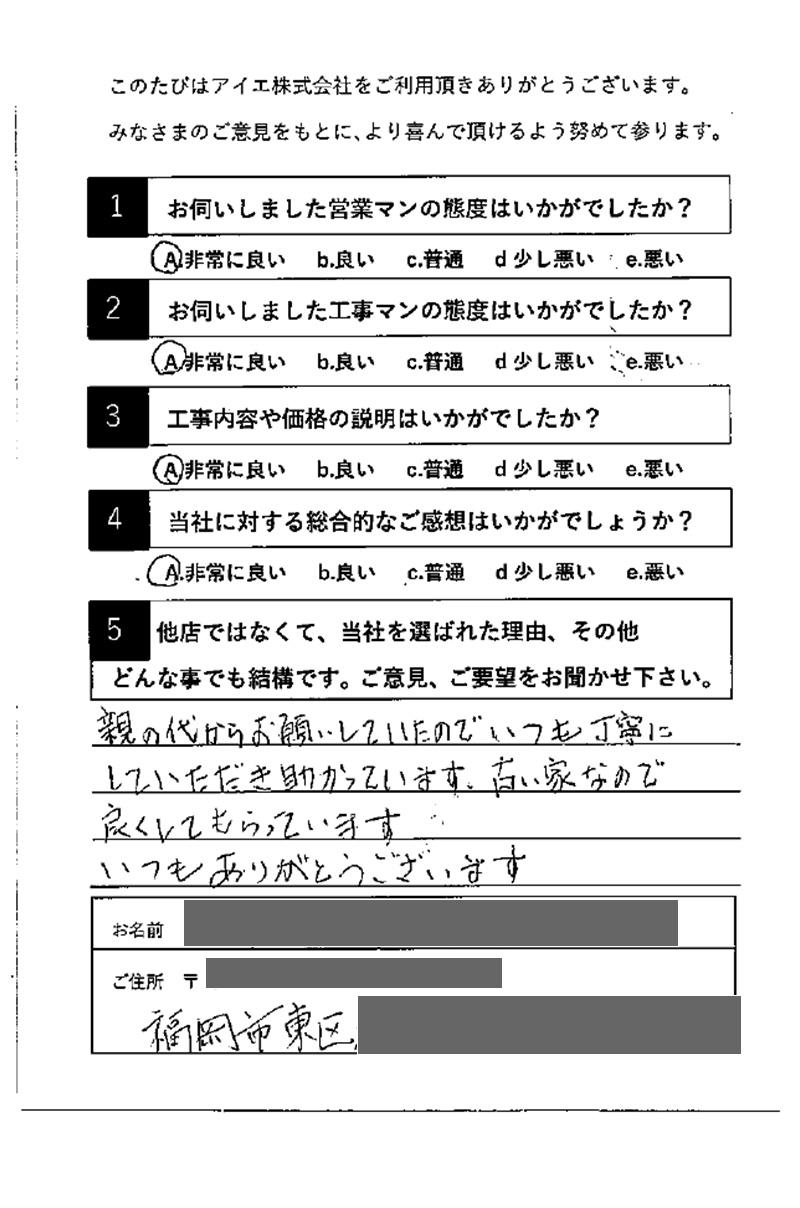 このたびはアイエ株式会社をご利用頂きありがとうございます。
みなさまのご意見をもとに、より喜んで頂けるよう努めて参ります。
1 お伺いしました営業マンの態度はいかがでしたか？
A.非常に良い b.良い c.普通 d 少し悪い e.悪い
2 お伺いしました工事マンの態度はいかがでしたか？
A.非常に良い b.良い c.普通 d 少し悪い e.悪い
3 工事内容や価格の説明はいかがでしたか？
A.非常に良い b.良い c.普通 d 少し悪い e.悪い
4 当社に対する総合的なご感想はいかがでしょうか？
A.非常に良い b.良い c.普通 d 少し悪い e.悪い
5 他店ではなくて、当社を選ばれた理由、その他
どんな事でも結構です。ご意見、ご要望をお聞かせ下さい。
親の代からお願いしていたのでいつも丁寧に
していただき助かっています。古い家なので
良くしてもらっています
いつもありがとうございます
お名前
ご住所 〒
福岡市東区